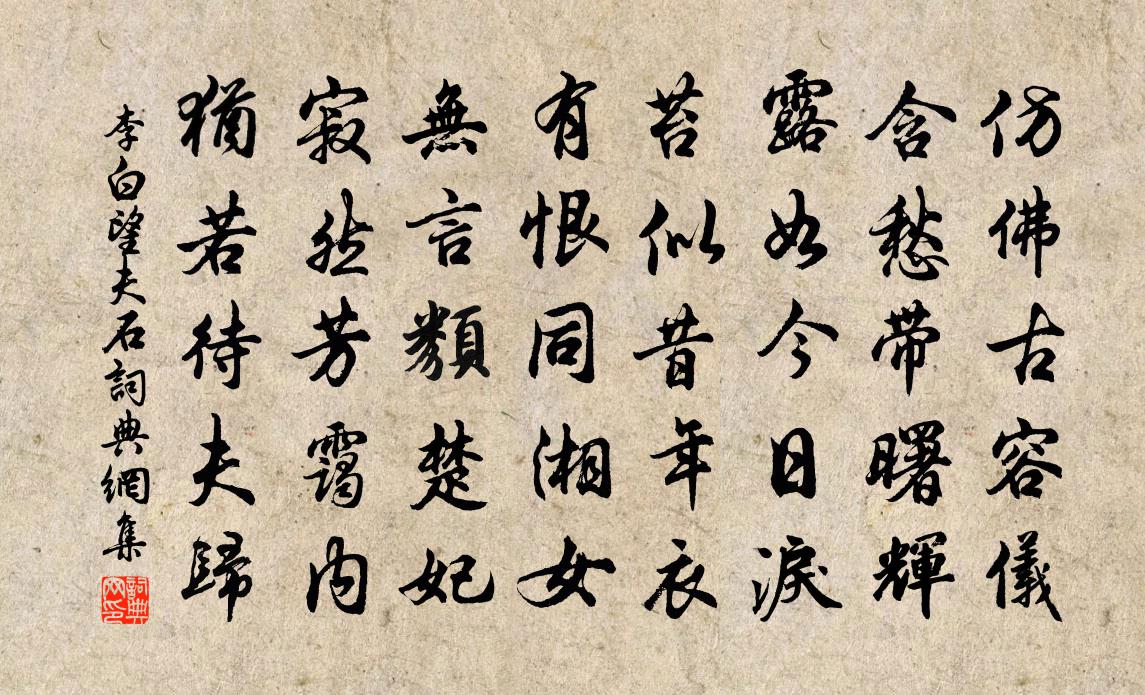 仿佛古容儀
含愁帶曙輝
露如今日淚
苔似昔年衣
有恨同湘女
無言類楚妃
寂然芳靄內
猶若待夫歸
李白望夫石詞典網集
詞典網印